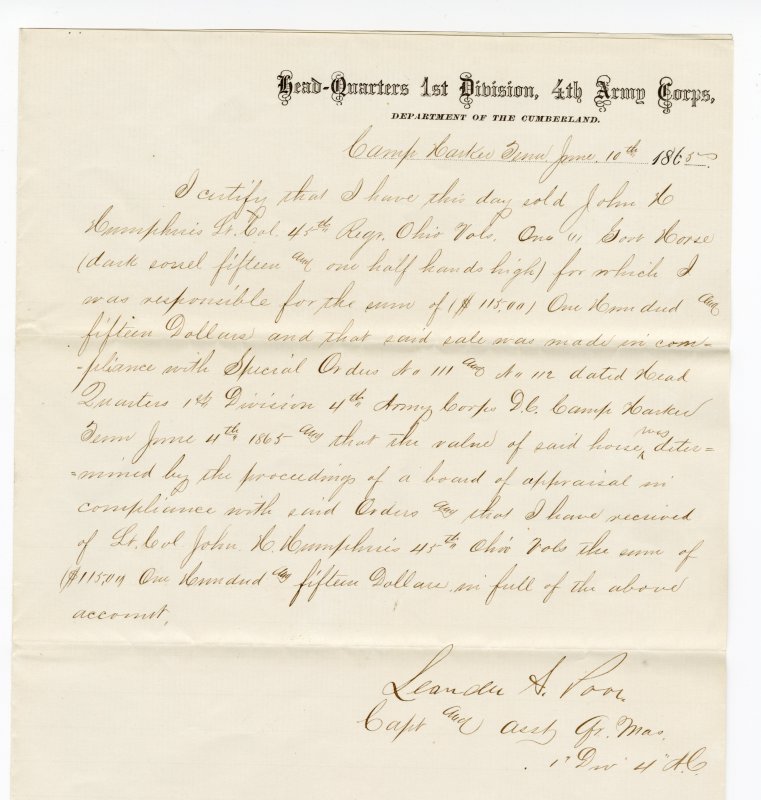 Head-Quarters 1st Division, 4th Army Corps,
DEPARTMENT OF THE CUMBERLAND.
Camp Harker Tenn June 10th 1865
I certify that I have this day sold John H
Humphries Lt. Col. 45th Regr. Ohio Vols. One (1) Govt Horse
(dark sorrel fifteen and one half hands high) for which I
was responsible for the sum of ($115,00) One Hundred and
fifteen Dollars and that said sale was made in com-
-pliance with Special Orders No 111 and No 112 dated Head
Quarters 1st Division 4th Army Corps D.C. Camp Harker
Tenn June 4th 1865 and that the value of said horse was deter=
=mined by the proceedings of a board of appraisal in
compliance with said Orders and that I have received
of Lt. Col John H. Humphries 45th Ohio Vols the sum of
($115,00) One Hundred and fifteen Dollars in full of the above
account,
Leander S. Poor.
Capt and asst Qr. Mas.
1" Div 4" A.C.